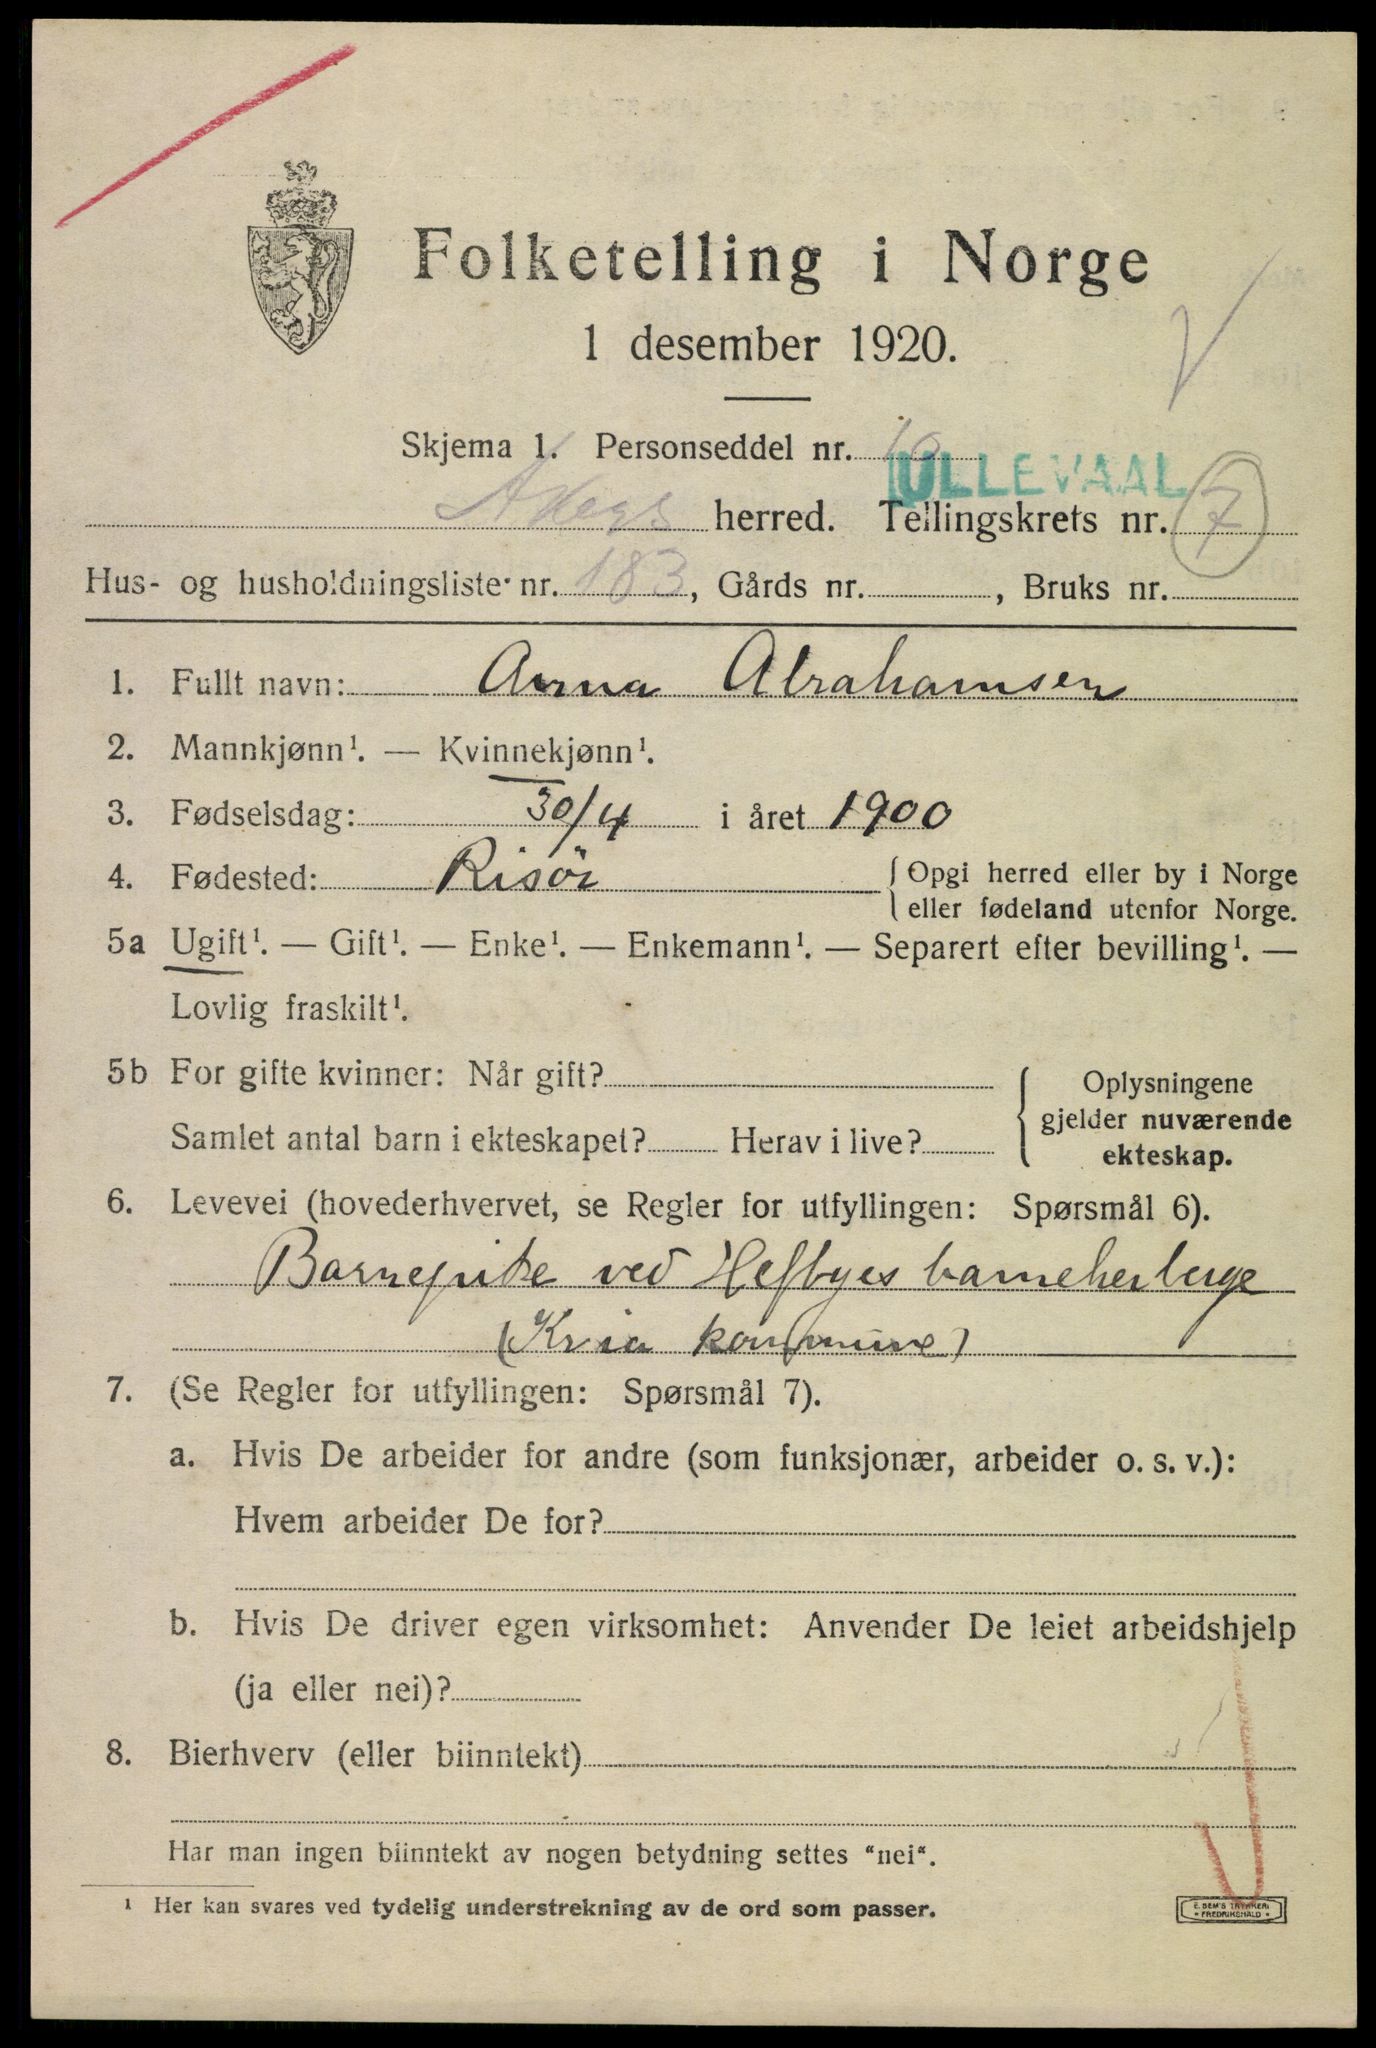 Folketelling i Norge
1 desember 1920.
Skjema 1. Personseddel nr. 10
ULLEVAAL
Akers herred. Tellingskrets nr. 7
Hus- og husholdningsliste nr. 183, Gårds nr. , Bruks nr.
1. Fullt navn: Anna Abrahamsen
2. Mannkjønn¹. — Kvinnekjønn¹.
3. Fødselsdag: 30/4 i året 1900
4. Fødested: Risör { Opgi herred eller by i Norge
eller fødeland utenfor Norge.
5a Ugift¹. — Gift¹. — Enke¹. — Enkemann¹. — Separert efter bevilling¹. —
Lovlig fraskilt¹.
5b For gifte kvinner: Når gift?
Samlet antal barn i ekteskapet? Herav i live?
{ Oplysningene
gjelder nuværende
ekteskap.
6. Levevei (hovederhvervet, se Regler for utfyllingen: Spørsmål 6).
Barnepike ved Hefbyes barneherberge
(Kria kommune)
7. (Se Regler for utfyllingen: Spørsmål 7).
a. Hvis De arbeider for andre (som funksjonær, arbeider o. s. v.):
Hvem arbeider De for?
b. Hvis De driver egen virksomhet: Anvender De leiet arbeidshjelp
(ja eller nei)?
8. Bierhverv (eller biinntekt)
Har man ingen biinntekt av nogen betydning settes "nei".
¹ Her kan svares ved tydelig understrekning av de ord som passer.
E. SEM'S TRYKKERI
• FREDRIKSHALD •